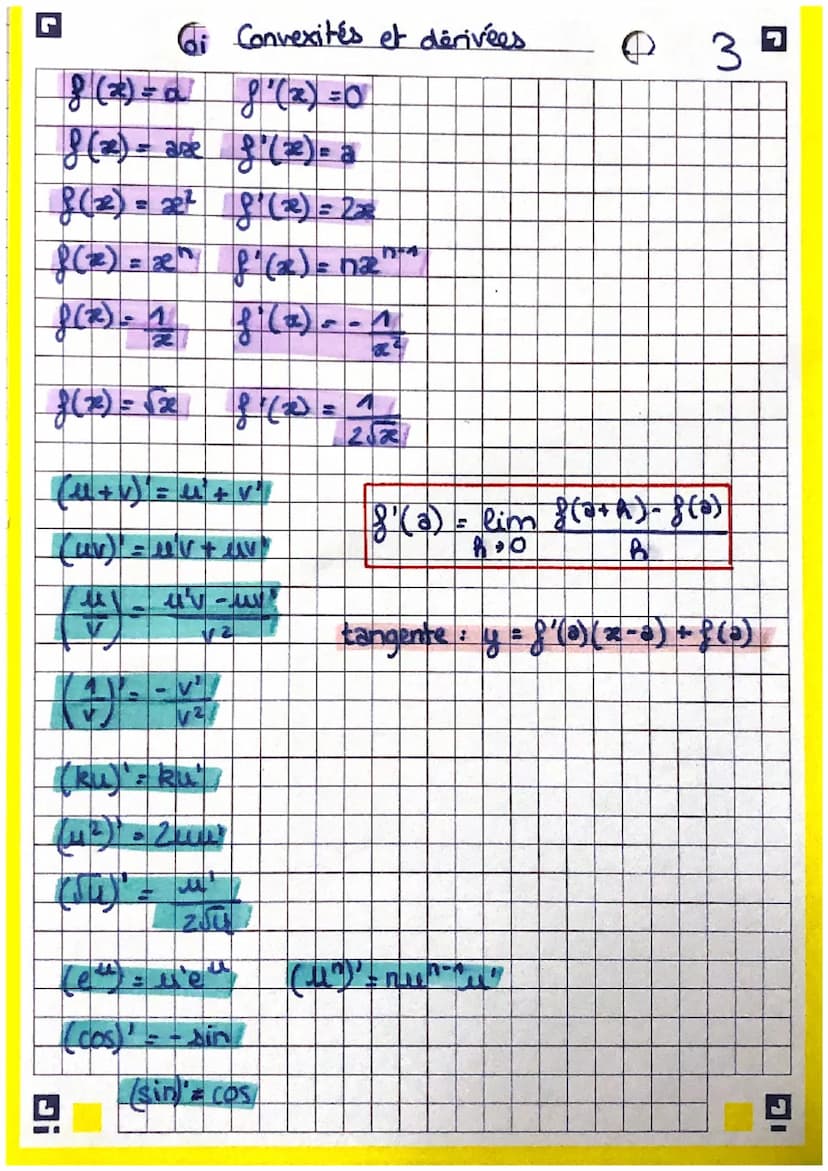 di Convexités et dérivées 3
f(x) = a f'(x) = 0
f(x) = ax f'(x) = a
f(x) = x² f'(x) = 2x
f(x) = xⁿ f'(x) = nxⁿ⁻¹
f(x) = 1/x f'(x) = - 1/x²
f(x) = √x f'(x) = 1/(2√x)
(u+v)' = u' + v'
f'(a) = lim h→0 (f(a+h) - f(a))/h
(uv)' = u'v + uv'
(u/v)' = (u'v - uv')/v²
tangente : y = f'(a)(x-a) + f(a)
(1/v)' = - v'/v²
(ku)' = ku'
(u²)' = 2uu'
(√u)' = u'/(2√u)
(eᵘ) = u'eᵘ (uⁿ)' = nuⁿ⁻¹u'
(cos)' = - sin
(sin)' = cos